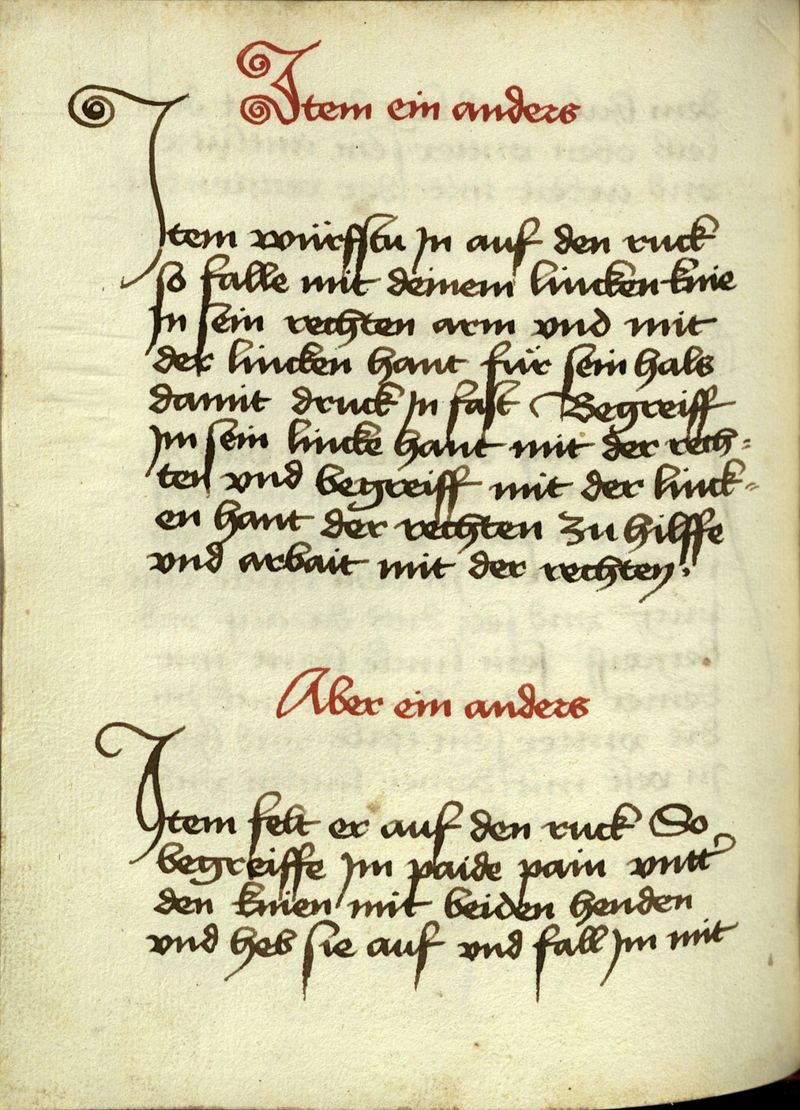 Item ein anders
Item würffstu Jn auf den ruck
so falle mit deinem lincken knie
Jn sein rechten arm vnd mit
der lincken hant für sein hals
damit druck Jn fast Begreiff
Jm sein lincke hant mit der rech-
ten vnd begreiff mit der linck-
en hant der rechten zu hilffe
vnd arbait mit der rechten.
Aber ein anders
Item felt er auf den ruck So
begreiffe Jm paide pain vntt'
den knien mit beiden henden
vnd heb sie auf vnd fall Jm mit